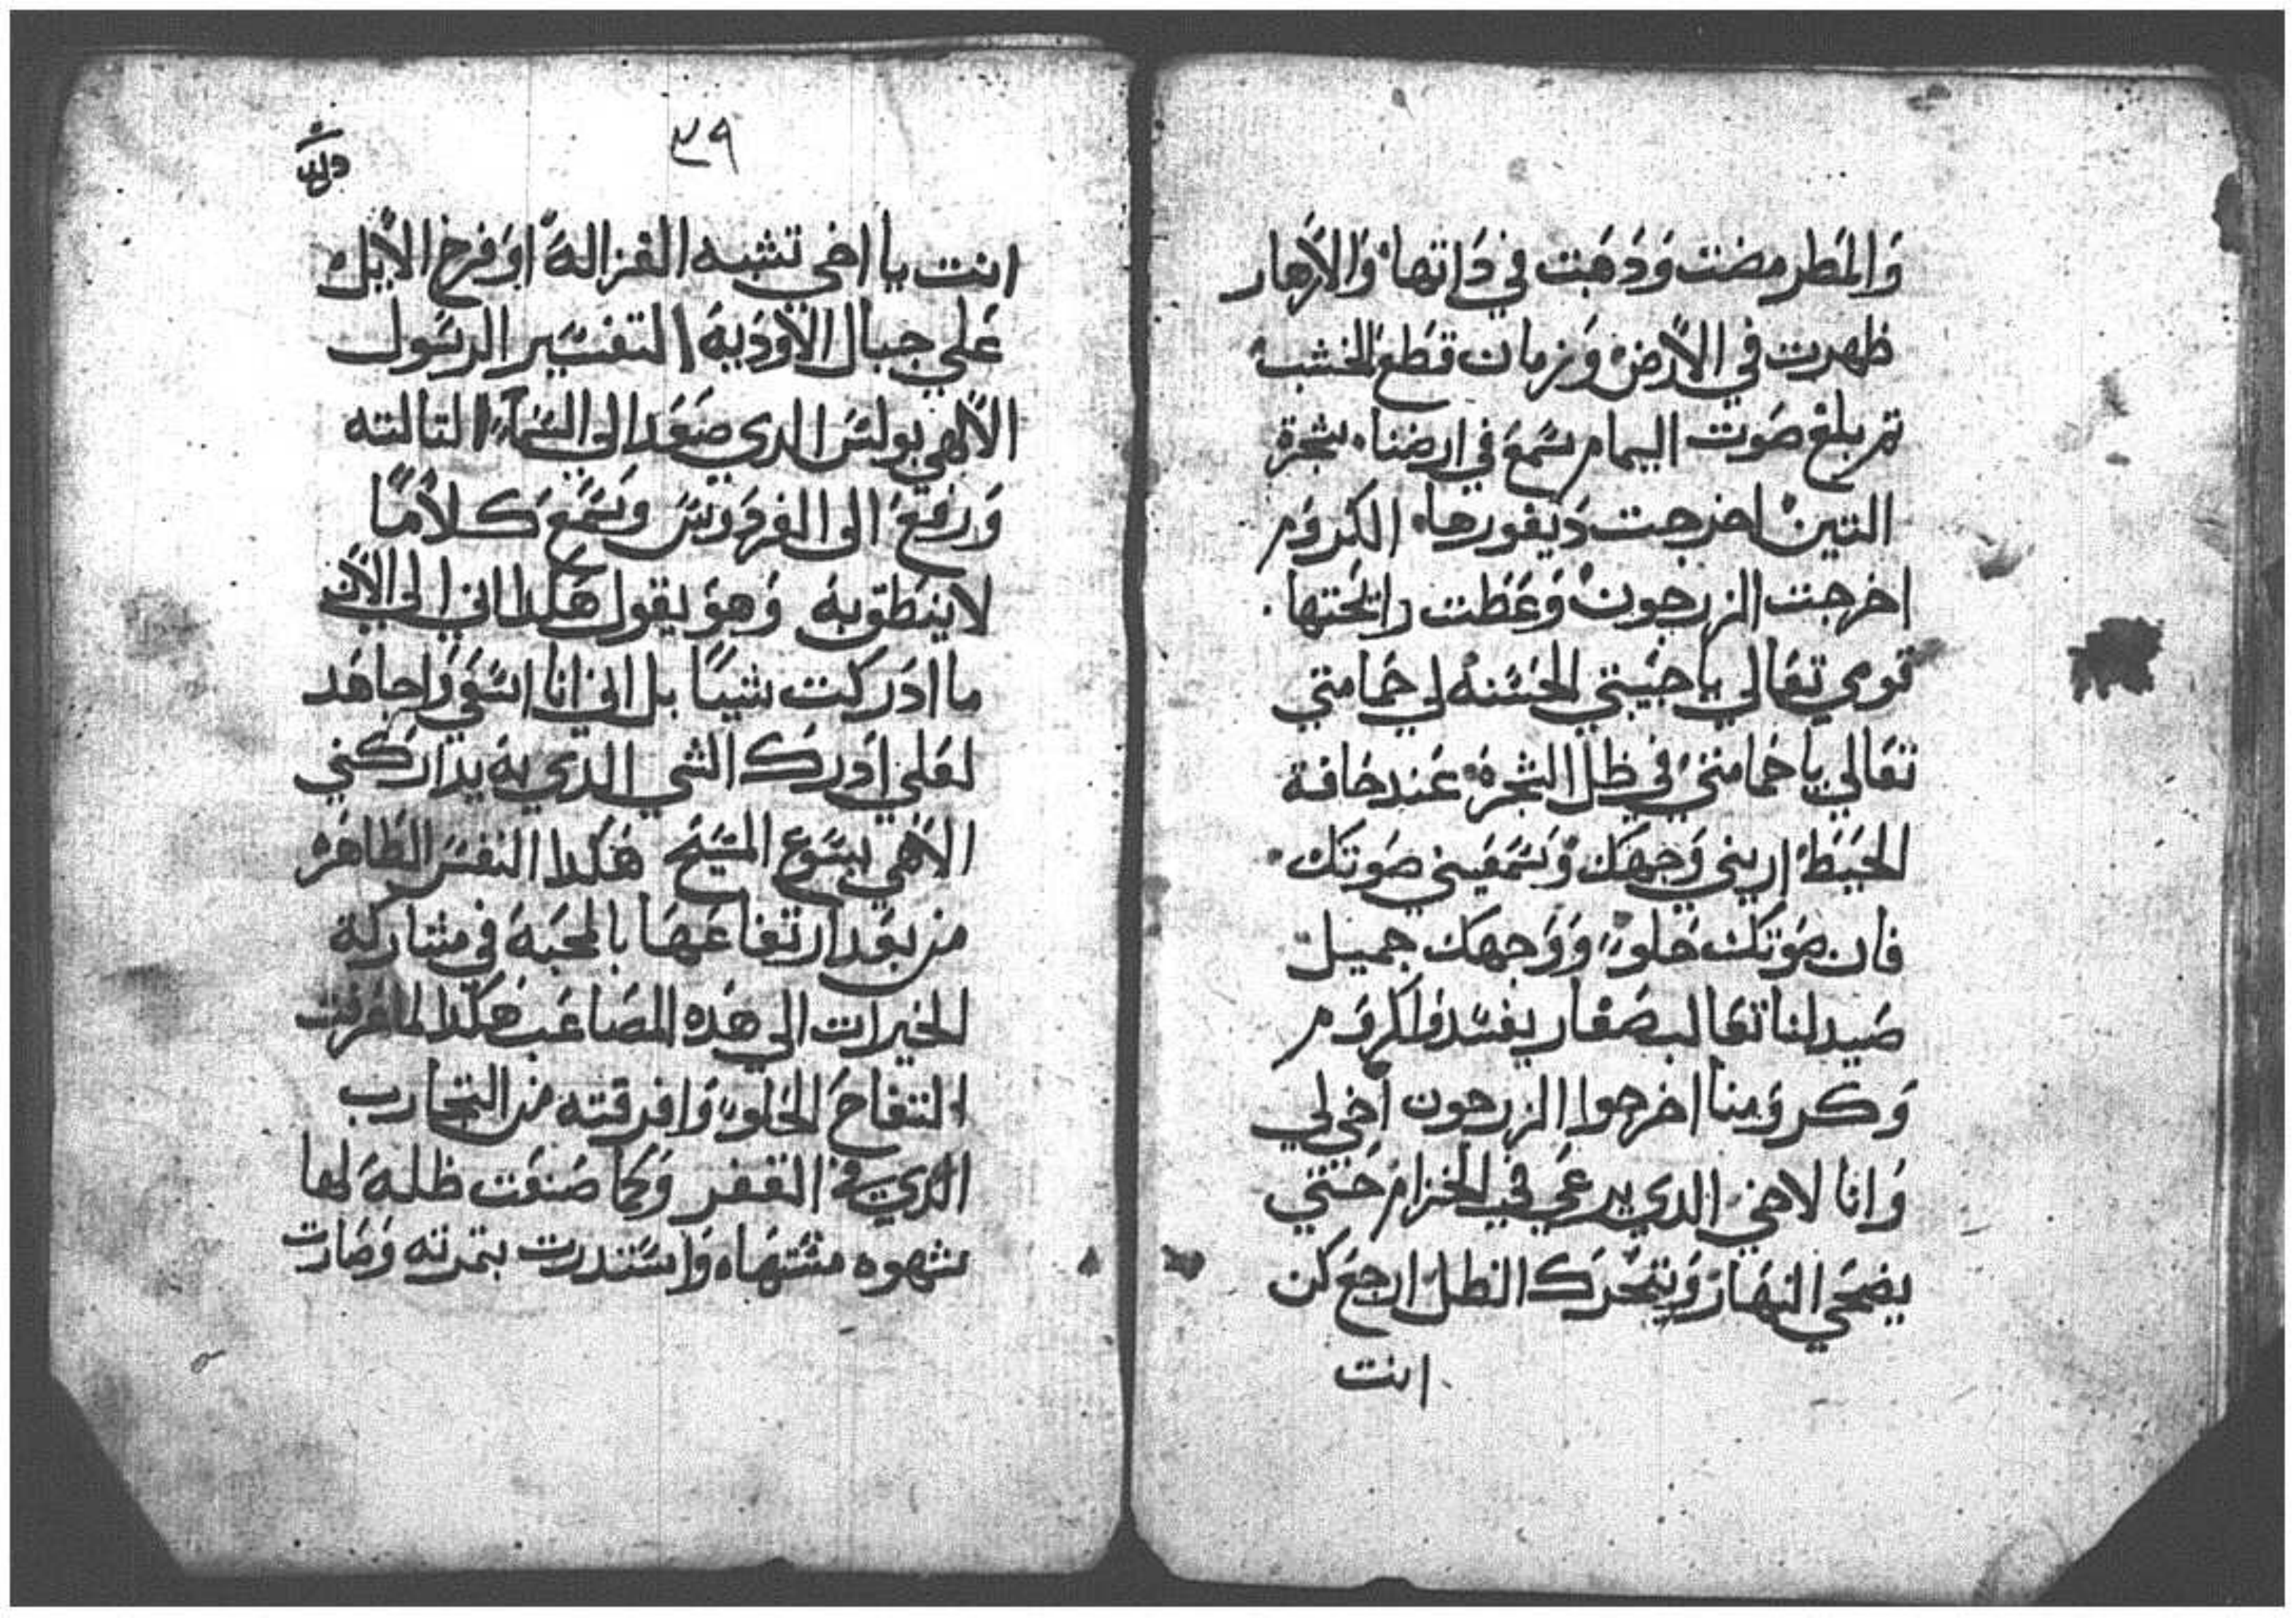 والمطر مضت وذهبت في ذاتها والازهار
ظهرت في الارض وزمان قطع الخشب
تم بلغ صوت اليمام سمع في ارضنا شجرة
التين اخرجت ديفورها الكروم
اخرجت الزرجون وعظت رايحتها
قومي تعالي يا حبيبتي الحسنه لي حمامتي
تعالي يا حمامتي في ظل الشجرة عند حافة
الحيط اريني وجهك وسمعيني صوتك
فان صوتك حلو ووجهك جميل
صيد لنا تعالب صغار يفسدوا كروم
وكرومنا اخرجوا الزرجون اخي لي
وانا لاخي الدي يرعي في الخزام حتي
يضحي النهار ويتحرك الظل ارجع كن
انت
٣٩
انت يا اخي تشبه الغزالة او فرخ الايل
علي جبال الاودية التفسير الرسول
الالهي بولس الدي صعد الى السماء التالته
ورفع الى الفردوس وسمع كلاما
لا ينطق به وهو يقول هكدا اني الي الان
ما ادركت شيا بل اني انا اسعي واجاهد
لعلي ادرك الشي الدي به يداركني
الالهي يسوع المسيح هكدا النفس الطاهره
من بعد ارتفاعها بالمحبة في مشاركة
الخيرات الي هده المصاعب هكدا لما عرفت
التفاح الحلو وافرقته من التجارب
الدي في القفر وكما صنعت ظله لها
شهوه مشتهاه واستدرت بتمرته وصارت